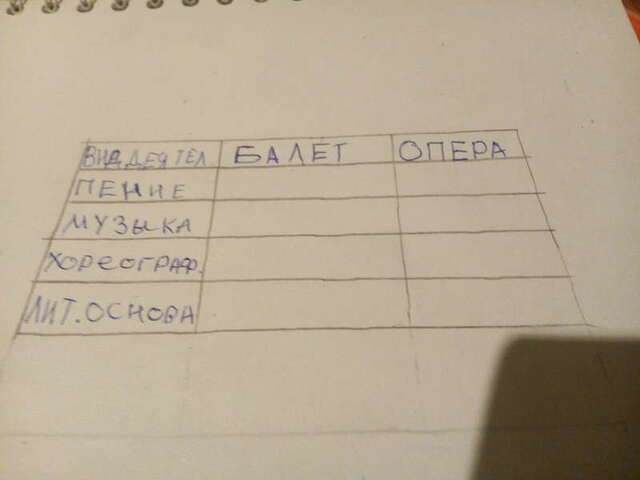 ВИД ДЕЯТЕЛ. БАЛЕТ ОПЕРА
ПЕНИЕ
МУЗЫКА
ХОРЕОГРАФ.
ЛИТ. ОСНОВА